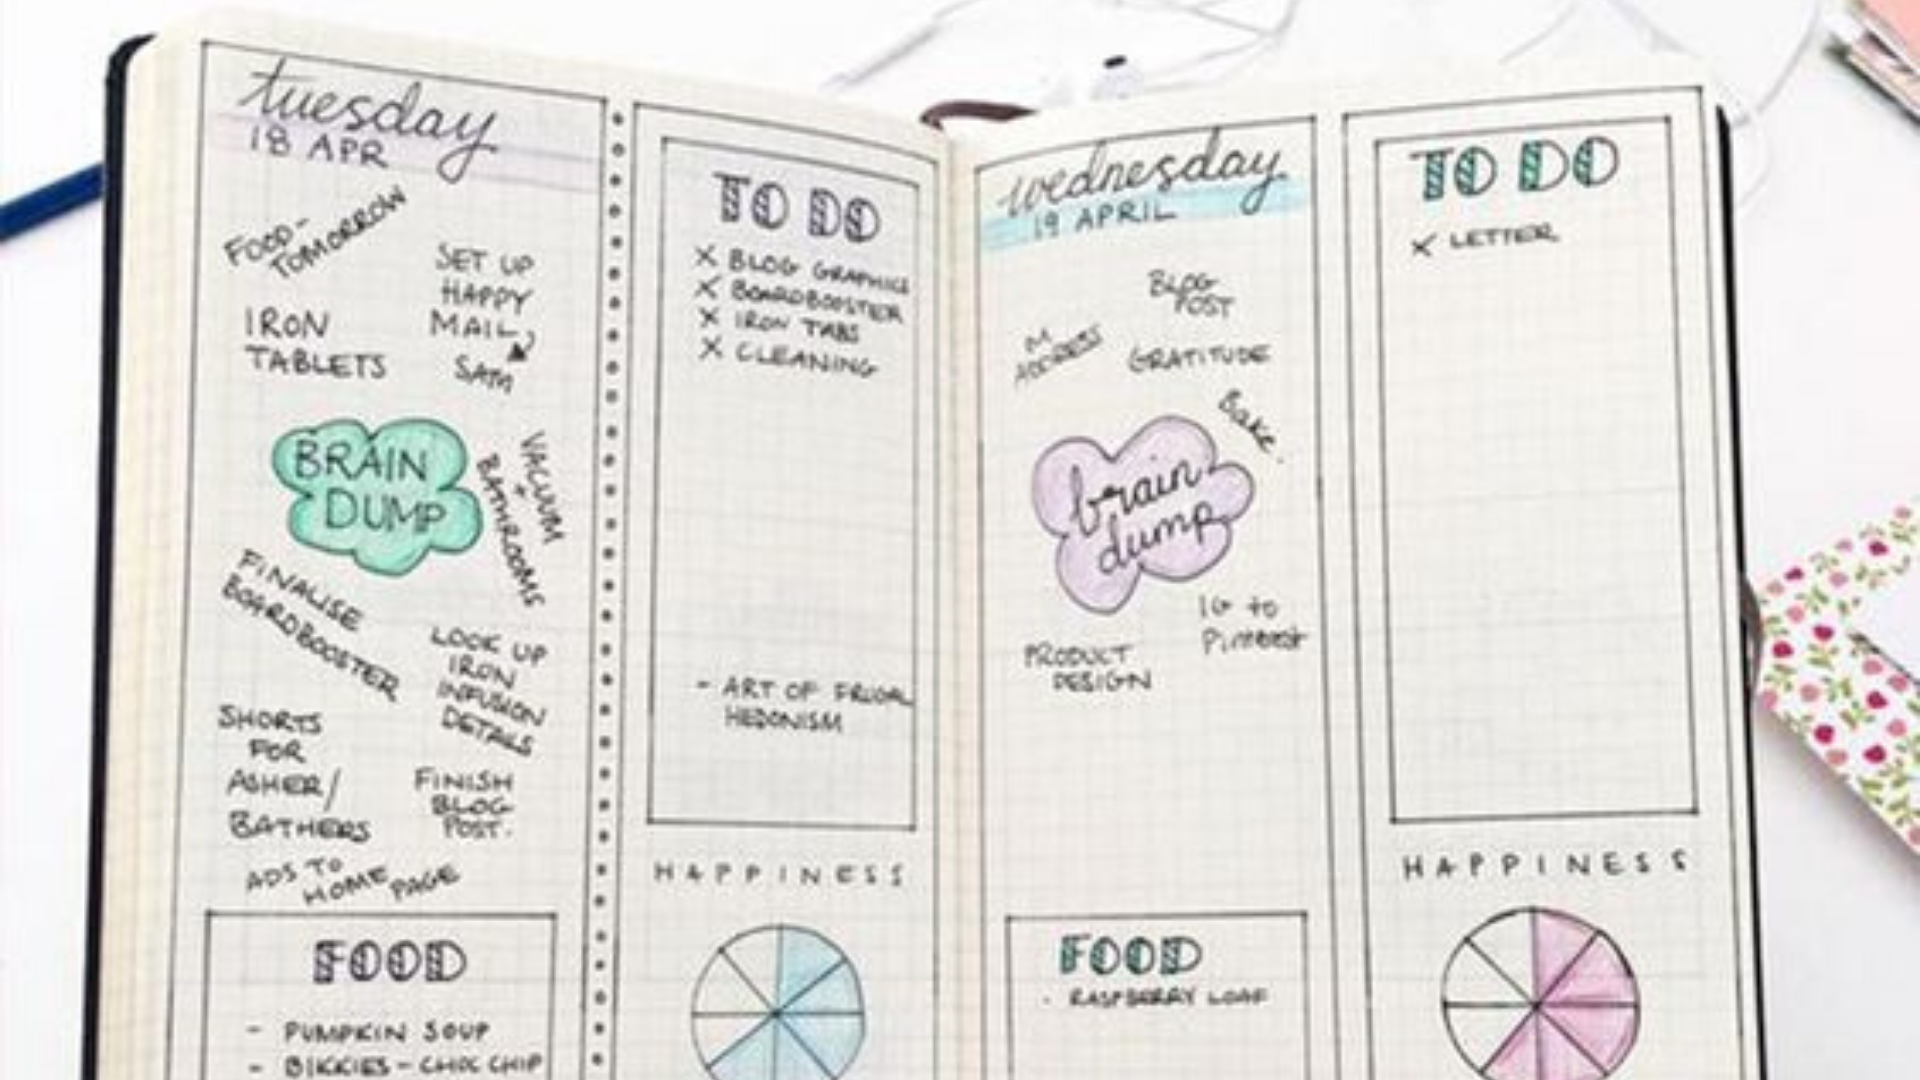 tuesday
18 APR
FOOD-
TOMORROW
SET UP
HAPPY
MAIL
SAM
IRON
TABLETS
BRAIN
DUMP
VACUUM
+
BATHROOMS
FINALISE
BOARDBOOSTER
LOOK UP
IRON
INFUSION
DETAILS
SHORTS
FOR
ASHER/
BATHERS
FINISH
BLOG
POST.
ADS TO
HOME PAGE
FOOD
- PUMPKIN SOUP
- BIKKIES - CHOC CHIP
TO DO
X BLOG GRAPHICS
X BOARDBOOSTER
X IRON TABS
X CLEANING
- ART OF FRUGAL
HEDONISM
HAPPINESS
wednesday
19 APRIL
BLOG
POST
M
ADDRESS
GRATITUDE
Bake.
brain
dump
IG to
Pinterest
PRODUCT
DESIGN
FOOD
- RASPBERRY LOAF
TO DO
X LETTER
HAPPINESS